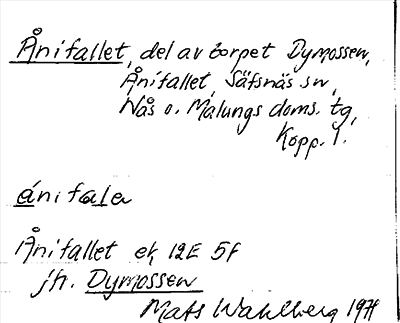 Ånifallet, del av torpet Dymossen,
Ånifallet, Säfsnäs sn,
Nås o. Malungs doms. tg,
Kopp. l.
ánifaler
Ånifallet ek 12E 5f
jfr. Dymossen
Mats Wahlberg